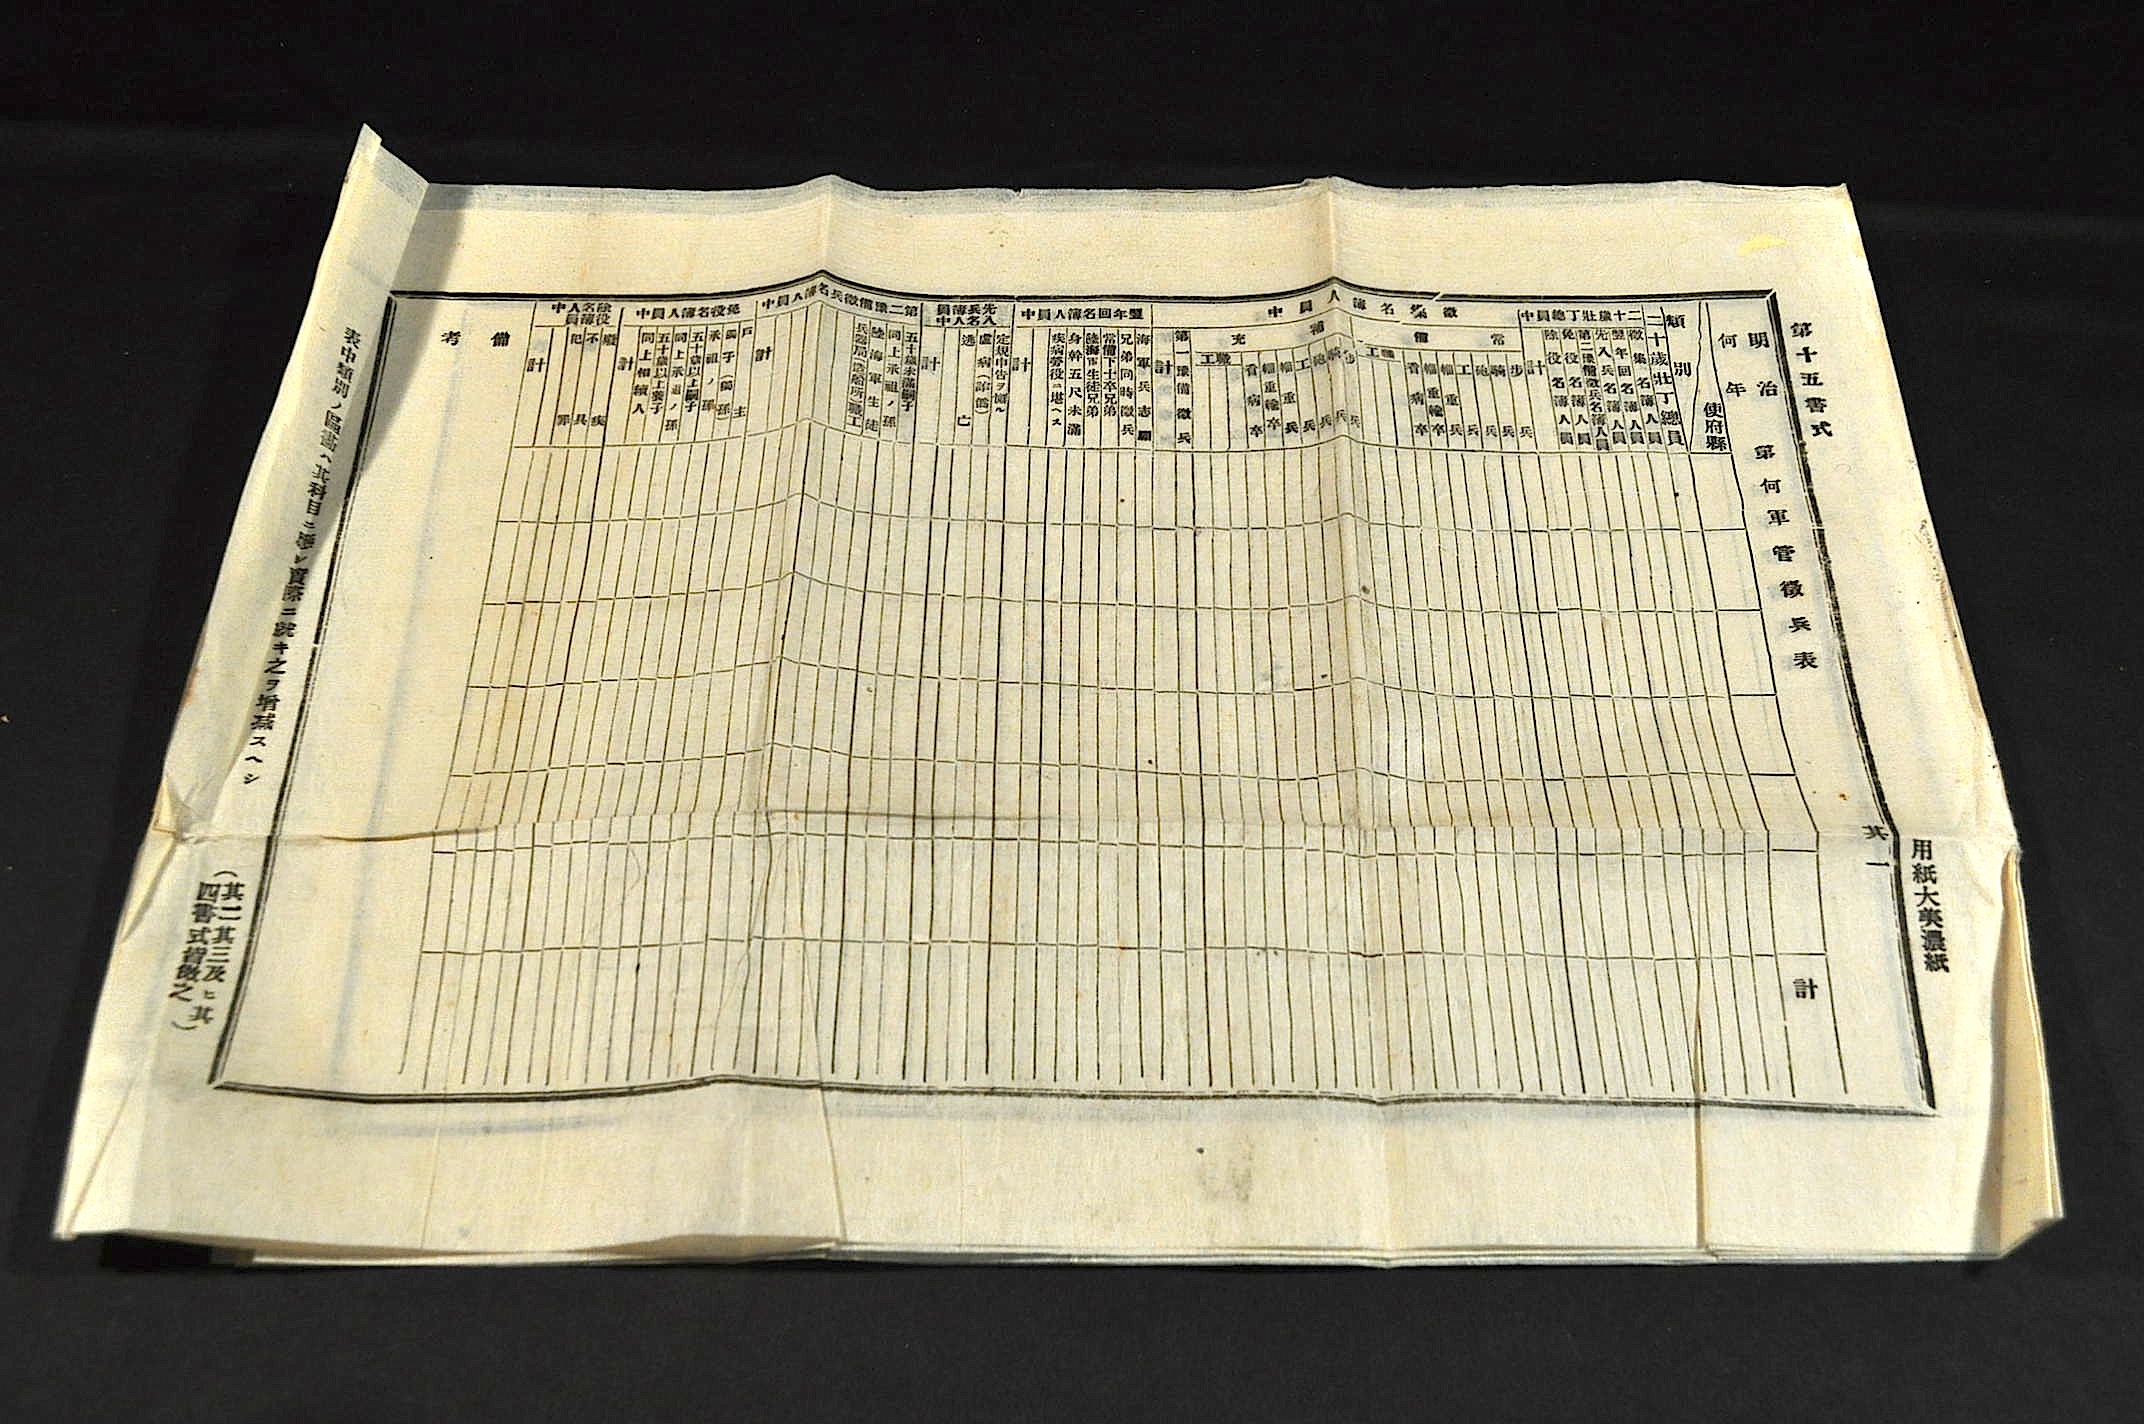 第十五書式
用紙大美濃紙
明治何年
第何軍管徵兵表
其一
類別
使府縣
計
二十歲壯丁總員
二十歲壯丁總員中
徵集名簿人員
翌年回名簿人員
先入兵名簿人員
第二豫備徵兵名簿人員
免役名簿人員
除役名簿人員
計
徵集名簿人員中
常備
步兵
騎兵
砲兵
工兵
輜重兵
輜重輸卒
看病卒
職工
補充
步兵
騎兵
砲兵
工兵
輜重兵
輜重輸卒
看病卒
職工
第一豫備徵兵
計
翌年回名簿人員中
海軍兵志願
兄弟同時徵兵
常備下士卒兄弟
陸海軍生徒兄弟
身幹五尺未滿
疾病勞役ニ堪ヘス
計
先入兵名簿人員中
定規申告ヲ
虛病(詐僞)
逃亡
計
第二豫備徵兵名簿人員中
五十歲未滿嗣子
同上承祖ノ孫
陸海軍生徒
兵器局(造船所)職工
計
免役名簿人員中
戶主
獨子(獨孫)
承祖ノ孫
五十歲以上嗣子
同上承祖ノ孫
五十歲以上養子
同上相續人
計
除役名簿人員中
廢疾
不具
犯罪
計
備考
表中類別ノ區畫ハ其科目ニ從ヒ實際ニ就キ之ヲ增減スヘシ
(其二其三及ヒ其
四書式皆傚之)